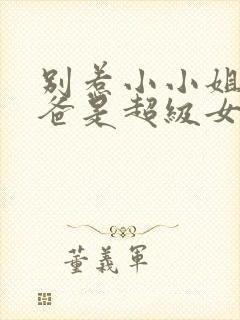 别惹小小姐
爸是超级女
董義軍